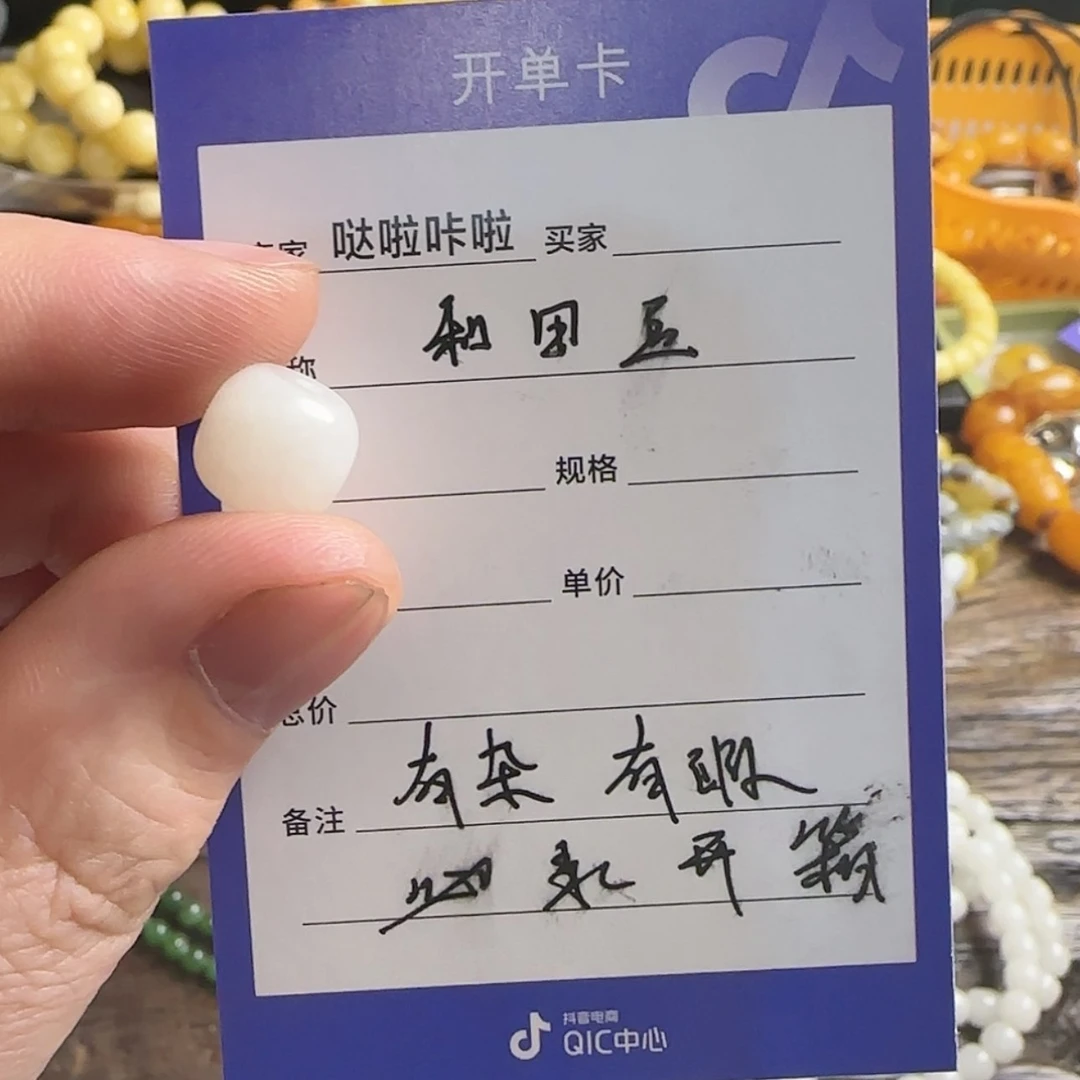 开单卡
卖家 哒啦咔啦 买家
称 和田玉
规格
单价
总价
备注 有杂 有瑕
开箱
抖音电商
QIC中心